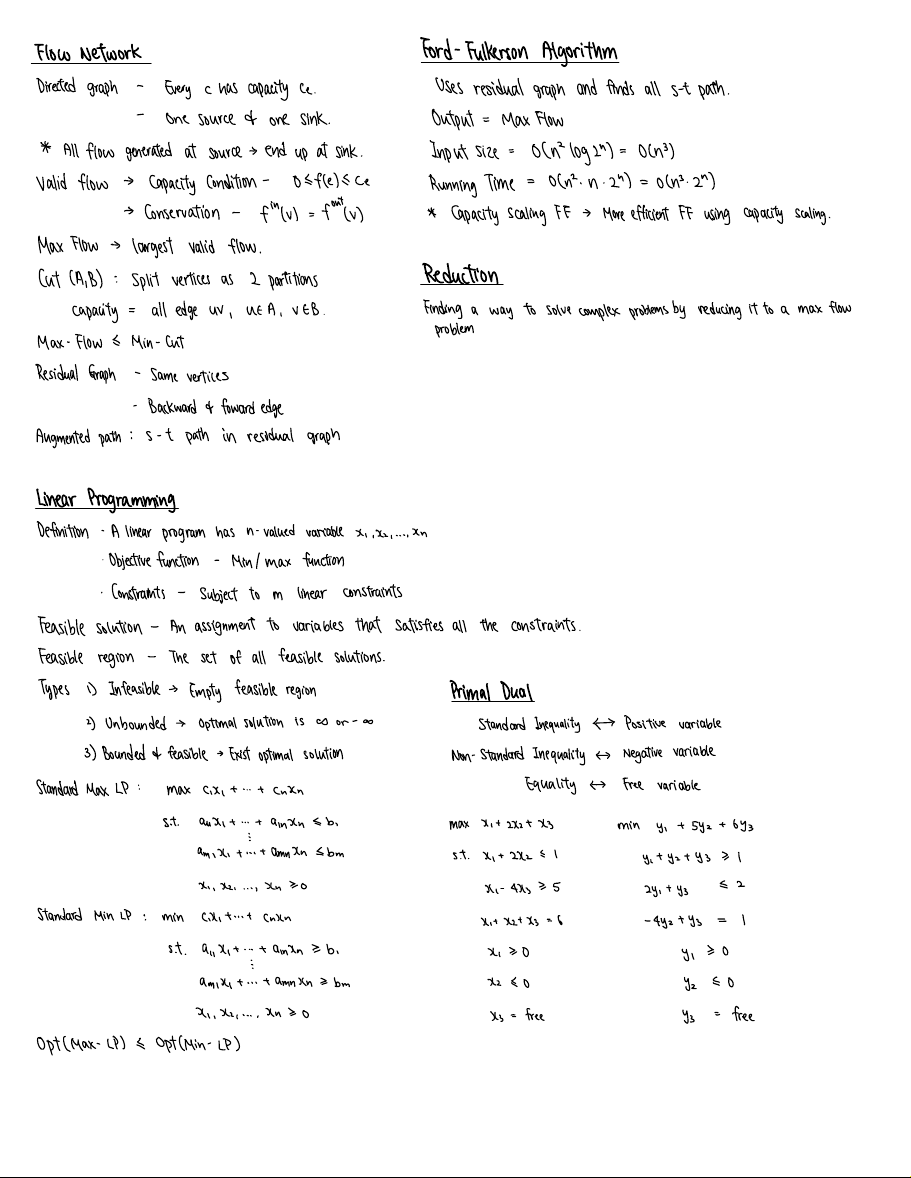 Flow Network
Directed graph - Every e has capacity Ce.
- One source & one sink.
* All flow generated at source → end up at sink.
Valid flow → Capacity Condition - 0 ≤ f(e) ≤ Ce
→ Conservation - f^in(v) = f^out(v)
Max Flow → largest valid flow.
Cut (A,B) : Split vertices as 2 partitions
capacity = all edge uv, u∈A, v∈B.
Max-Flow ≤ Min-Cut
Residual Graph - Same vertices
- Backward & foward edge
Augmented path : s-t path in residual graph
Ford-Fulkerson Algorithm
Uses residual graph and finds all s-t path.
Output = Max Flow
Input size = O(n² log 2ⁿ) = O(n³)
Running Time = O(n² · n · 2ⁿ) = O(n³ · 2ⁿ)
* Capacity scaling FF → More efficient FF using capacity scaling.
Reduction
Finding a way to solve complex problems by reducing it to a max flow
problem
Linear Programming
Definition · A linear program has n-valued variable x₁, x₂, ..., xn
· Objective function - Min/max function
· Constraints - Subject to m linear constraints
Feasible solution - An assignment to variables that satisfies all the constraints.
Feasible region - The set of all feasible solutions.
Types 1) Infeasible → Empty feasible region
2) Unbounded → Optimal solution is ∞ or -∞
3) Bounded & feasible → Exist optimal solution
Standard Max LP : max c₁x₁ + ... + cnxn
s.t. a₁₁x₁ + ... + a₁nxn ≤ b₁
⋮
am₁x₁ + ... + amnxn ≤ bm
x₁, x₂, ..., xn ≥ 0
Standard Min LP : min c₁x₁ + ... + cnxn
s.t. a₁₁x₁ + ... + a₁nxn ≥ b₁
⋮
am₁x₁ + ... + amnxn ≥ bm
x₁, x₂, ..., xn ≥ 0
Opt(Max-LP) ≤ Opt(Min-LP)
Primal Dual
Standard Inequality ↔ Positive variable
Non-Standard Inequality ↔ Negative variable
Equality ↔ Free variable
max x₁ + 2x₂ + x₃ min y₁ + 5y₂ + 6y₃
s.t. x₁ + 2x₂ ≤ 1 y₁ + y₂ + y₃ ≥ 1
x₁ - 4x₃ ≥ 5 2y₁ + y₃ ≤ 2
x₁ + x₂ + x₃ = 6 -4y₂ + y₃ = 1
x₁ ≥ 0 y₁ ≥ 0
x₂ ≤ 0 y₂ ≤ 0
x₃ = free y₃ = free